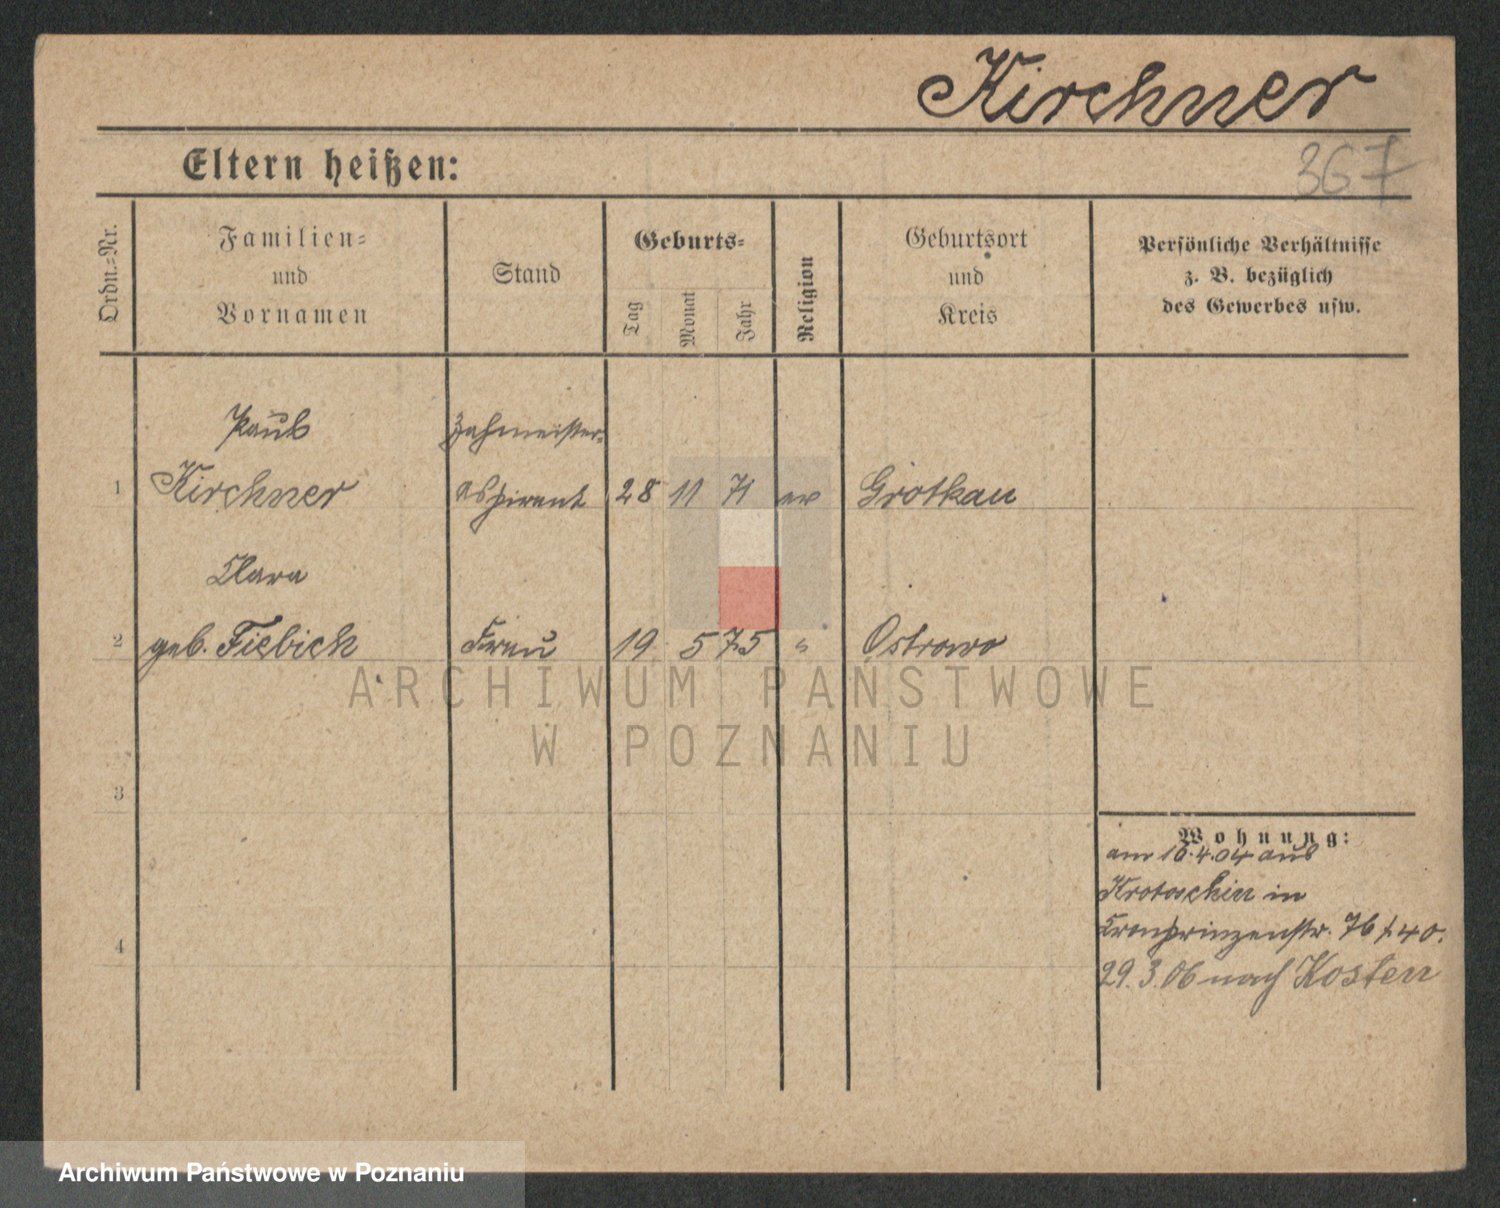 Kirchner
Eltern heißen:
367
Ordn.-Nr.
Familien-
und
Vornamen
Stand
Geburts-
Tag
Monat
Jahr
Religion
Geburtsort
und
Kreis
Persönliche Verhältnisse
z. B. bezüglich
des Gewerbes usw.
Paul Zahmeister-
1 Kirchner aspirant 28 11 71 ev Grotkau
Clara
2 geb. Fiebich Frau 19 5 75 " Ostrowo
3
4
Wohnung:
am 16.4.04 aus
Krotoschin in
Cronprinzenstr. 76
29.3.06 nach Kosten
ARCHIWUM PAŃSTWOWE
W POZNANIU
Archiwum Państwowe w Poznaniu